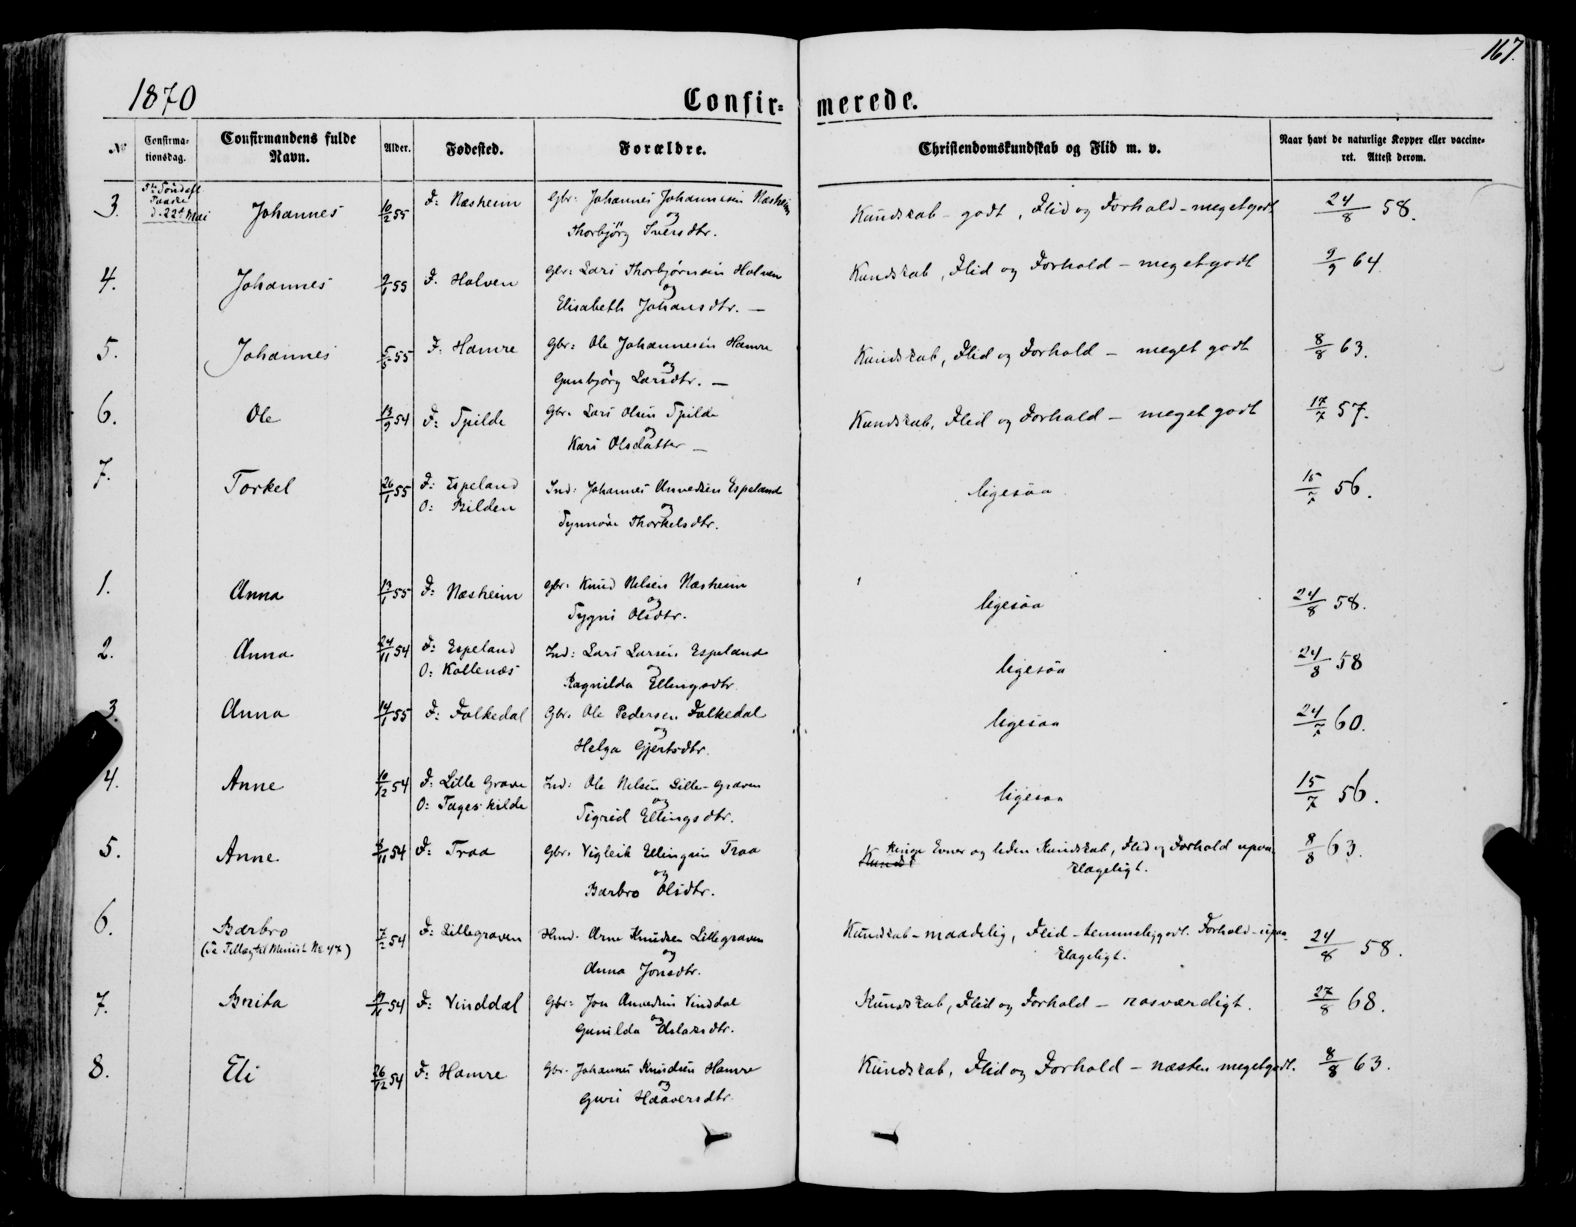 167.
1870 Confir- merede.
No Confirma-tionsdag. Confirmandens fulde Navn. Alder. Fødested. Forældre. Christendomskundskab og Flid m. v. Naar havt de naturlige Kopper eller vaccineret. Attest derom.
3. 5te Søndag Paaske d. 22de Mai Johannes 10/2 55 F: Næsheim Gbr: Johannes Johannessen Næsheim
og
Thorbjörg Iversdtr.
Kundskab - godt, Flid og Forhold - meget godt 24/8 58.
4. Johannes 9/1 55 F. Halven Gbr: Lars Thorbjørnsen Halven
og
Elisabeth Johansdtr. —
Kundskab, Flid og Forhold - meget godt 9/9 64.
5. Johannes 5/5 55 F: Hamre Gbr: Ole Johannesen Hamre
og
Gunbjörg Larsdtr. —
Kundskab, Flid og Forhold - meget godt 8/8 63.
6. Ole 13/9 54 F: Spilde Gbr. Lars Olsen Spilde
og
Kari Olsdatter —
Kundskab, Flid og Forhold - meget godt 17/7 57.
7. Torkel 26/1 55 F: Espeland Ind: Johannes Espeland
O: Bilden og
Synnøve Thorkelsdtr.
ligesaa 15/7 56.
1. Anna 13/1 55 F: Næsheim Gbr. Knud Nilsen Næsheim
og
Sygni Olsdtr.
ligesaa 24/8 58.
2. Anna 24/11 54 F: Espeland Ind: Lars Larsen Espeland
O: Kollenæs og
Ragnilda Ellingsdtr.
ligesaa 24/8 58
3. Anna 14/1 55 F: Folkedal Gbr. Ole Pedersen Folkedal
og
Helga Gjertsdtr.
ligesaa 24/7 60.
4. Anne 10/12 54 F: Lille Grave Ind: Ole Nilsen Lille-Graven
O: og
Sigrid Ellingsdtr.
ligesaa 15/7 56.
5. Anne 54 F: Traa Gbr. Vigleik Ellingsen Traa
og
Barbro Olsdtr.
Kundsk Ringe Evner og liden Kundskab, Flid og Forhold upaa-
klageligt. 8/8 63.
6. Barbro 54 F: Lillegraven Huusm. Arne Knudsen Lillegraven
og
Anna Jonsdtr.
Kundskab - maadelig, Flid - temmelig godt. Forhold - upaa-
klageligt. 24/8 58.
7. Brita 54 F: Vinddal Gbr: Jon Vinddal
og
Gunilda Aslaksdtr.
Kundskab, Flid og Forhold - rosværdigt. 27/8 68.
8. Eli 26/12 54 F: Hamre Gbr. Johannes Knudsen Hamre
og
Guri Haaversdtr.
Kundskab, Flid og Forhold - næsten meget godt. 8/8 63.